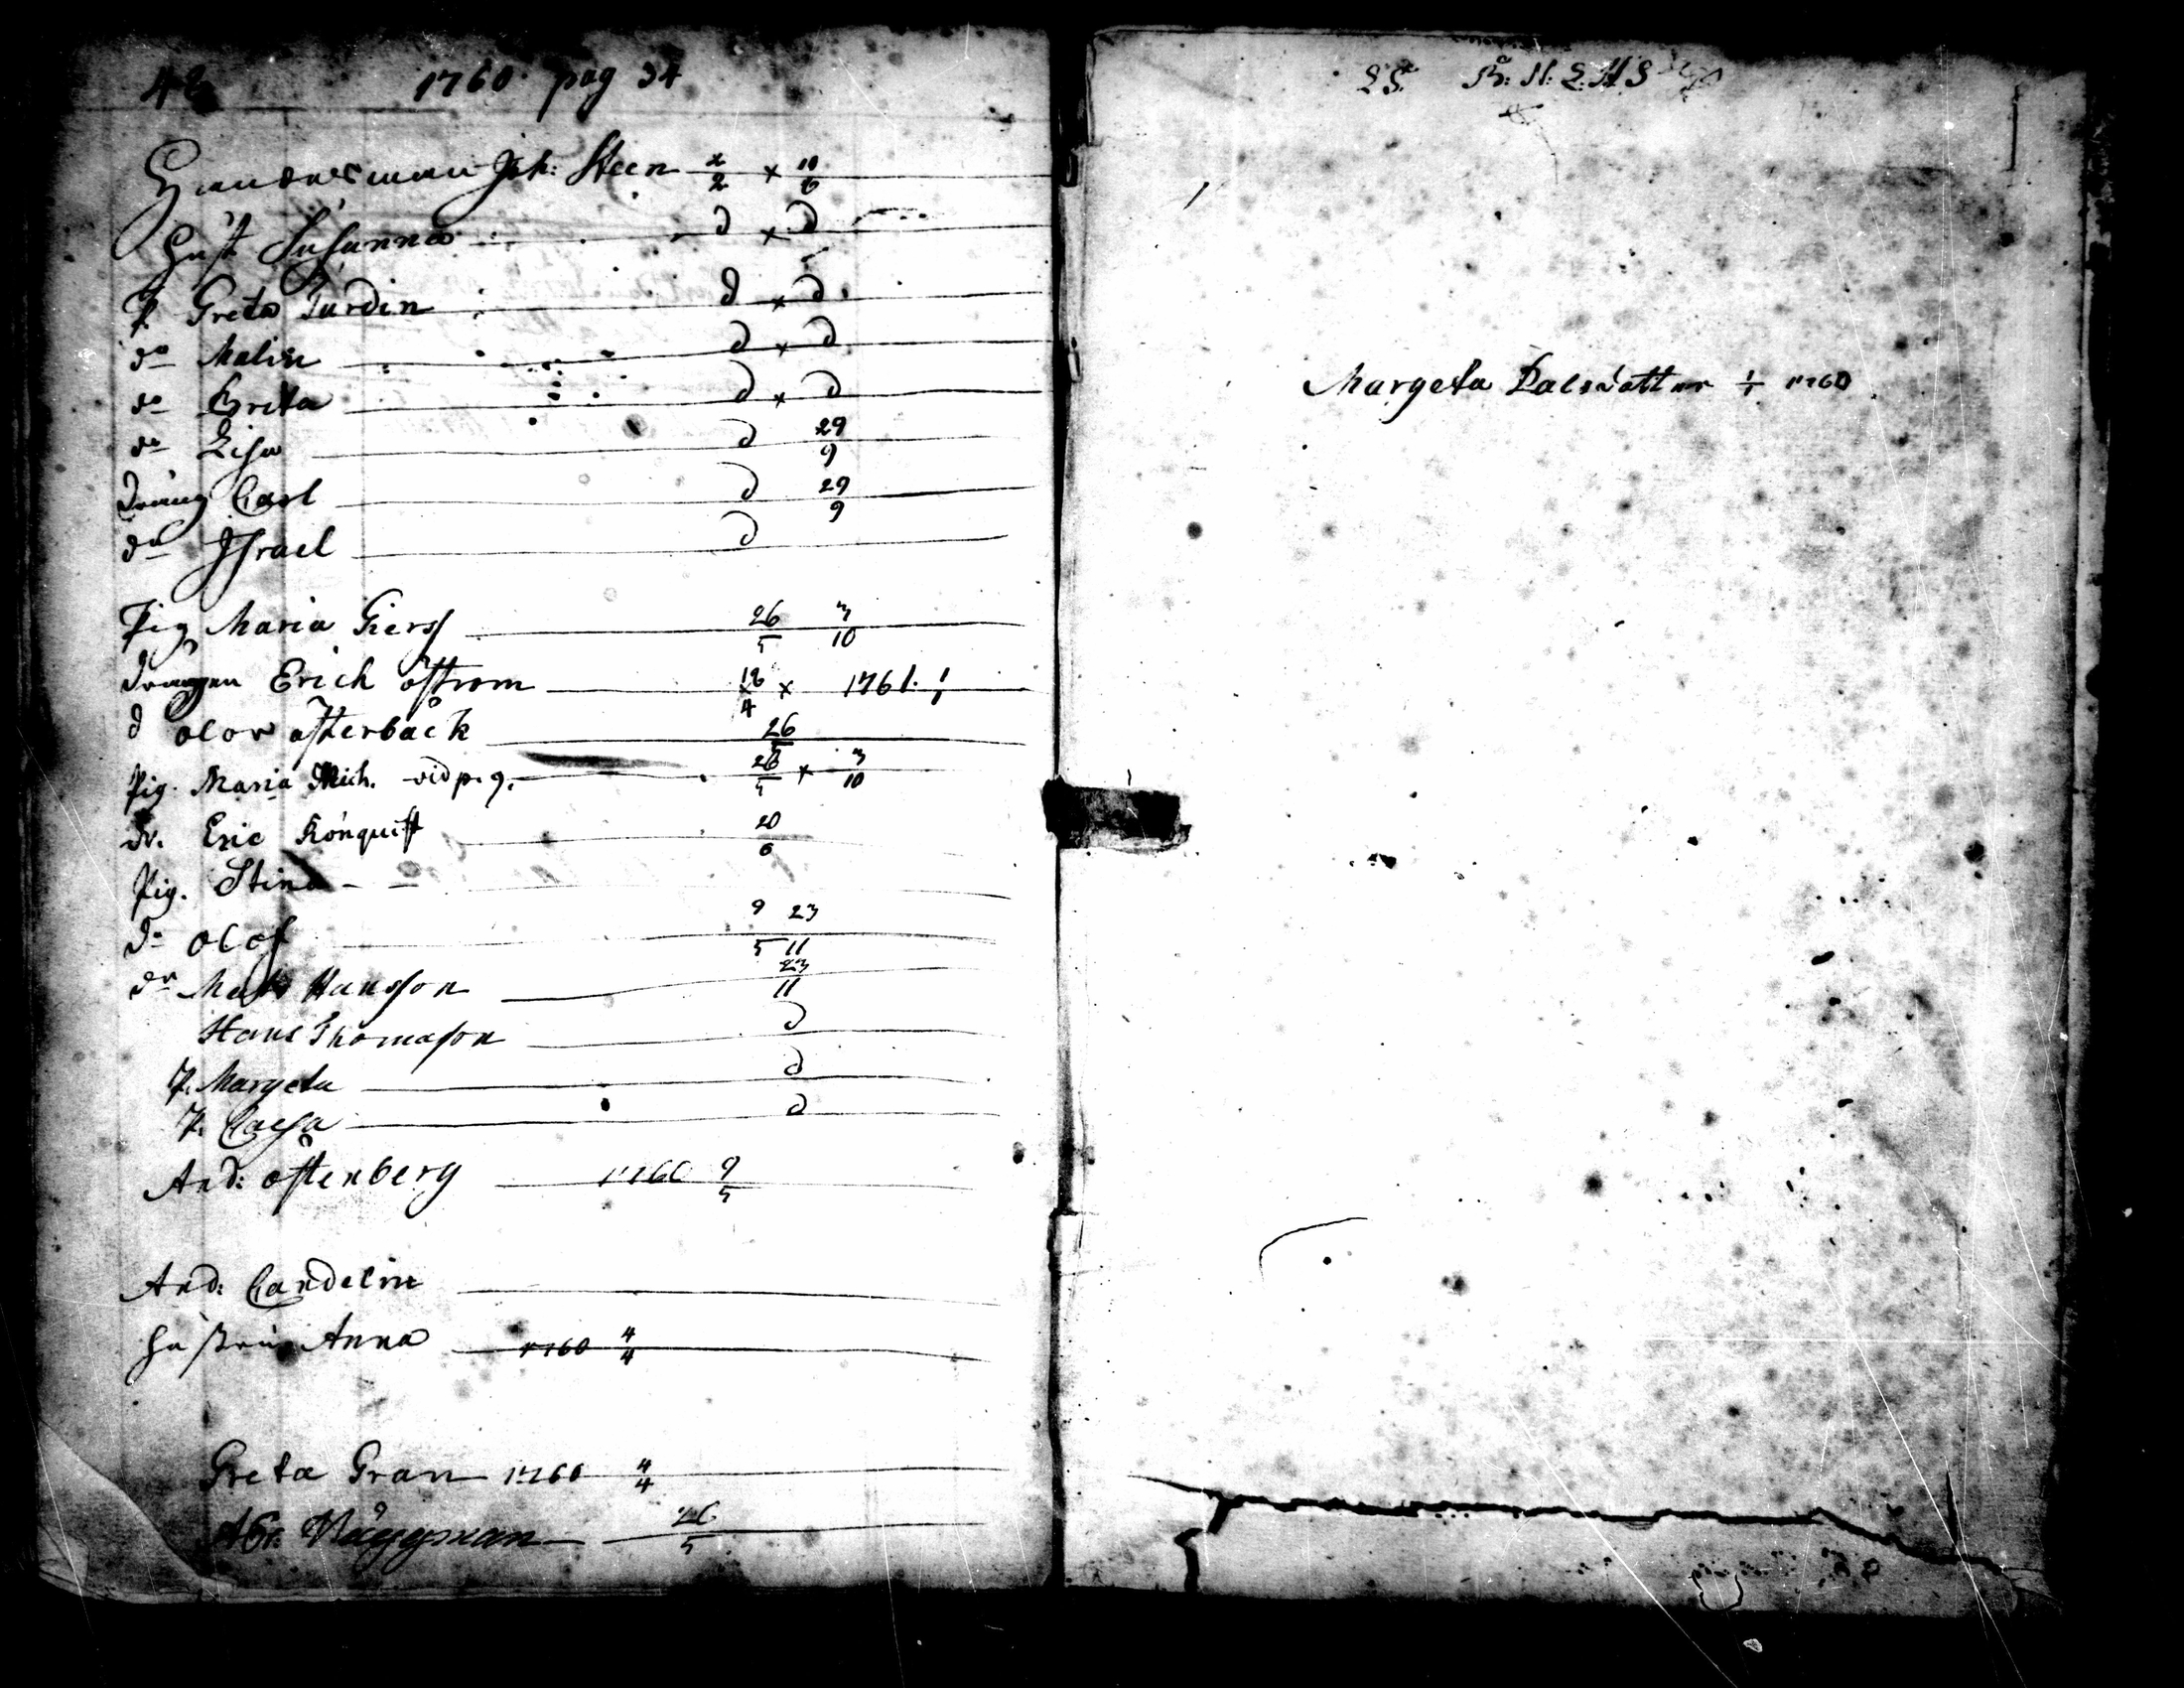 48 1760 pag 34
Handelsman Joh: Steen 2/2 x 10/6
Hust Susanna d x d
P. Greta Turdin d x d
do Malin d x d
do Brita d x d
do Lisa d 29/9
Dräng Carl d 29/9
do Israel d
Pig Maria Giers 26/5 3/10
Drängen Erich öström 18/4 x 1761. 1/1
d olov österback 26/5
Pig. Maria Mich. vid p. g. 26/5 x 3/10
Dr. Eric Rönquist 20/6
Pig. Stina
do olof 9/5 23/11
dr Mats Hansson 23/11
Hans Thomasson d
P. Margeta d
P. Caisa d
And: östenberg 1760 9/5
And: Candelin
hustru Anna 1760 4/4
Greta Gran 1760 4/4
Abr. Häggman 26/5
LS. B: N: L: H S
Margeta Palsdotter 1/1 1760